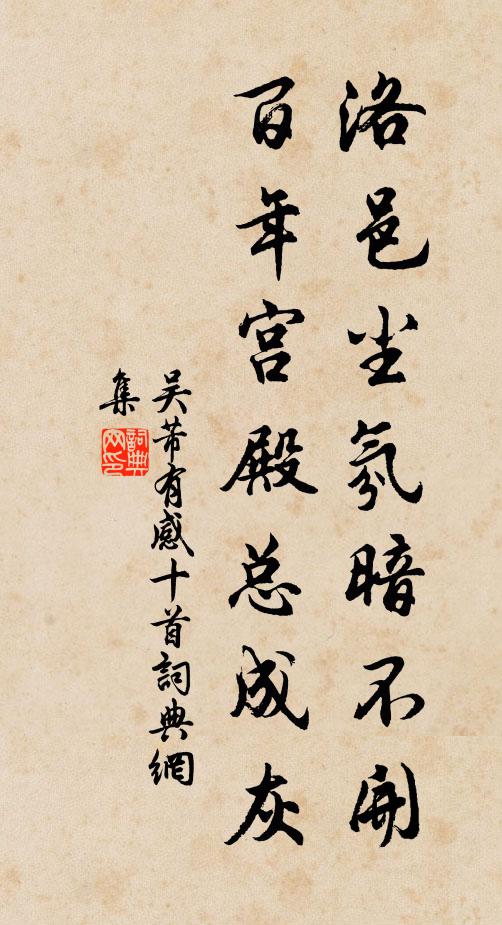 洛邑尘氛暗不開
百年宫殿总成灰
吴芾有感十首詞典網
集
詞典網印